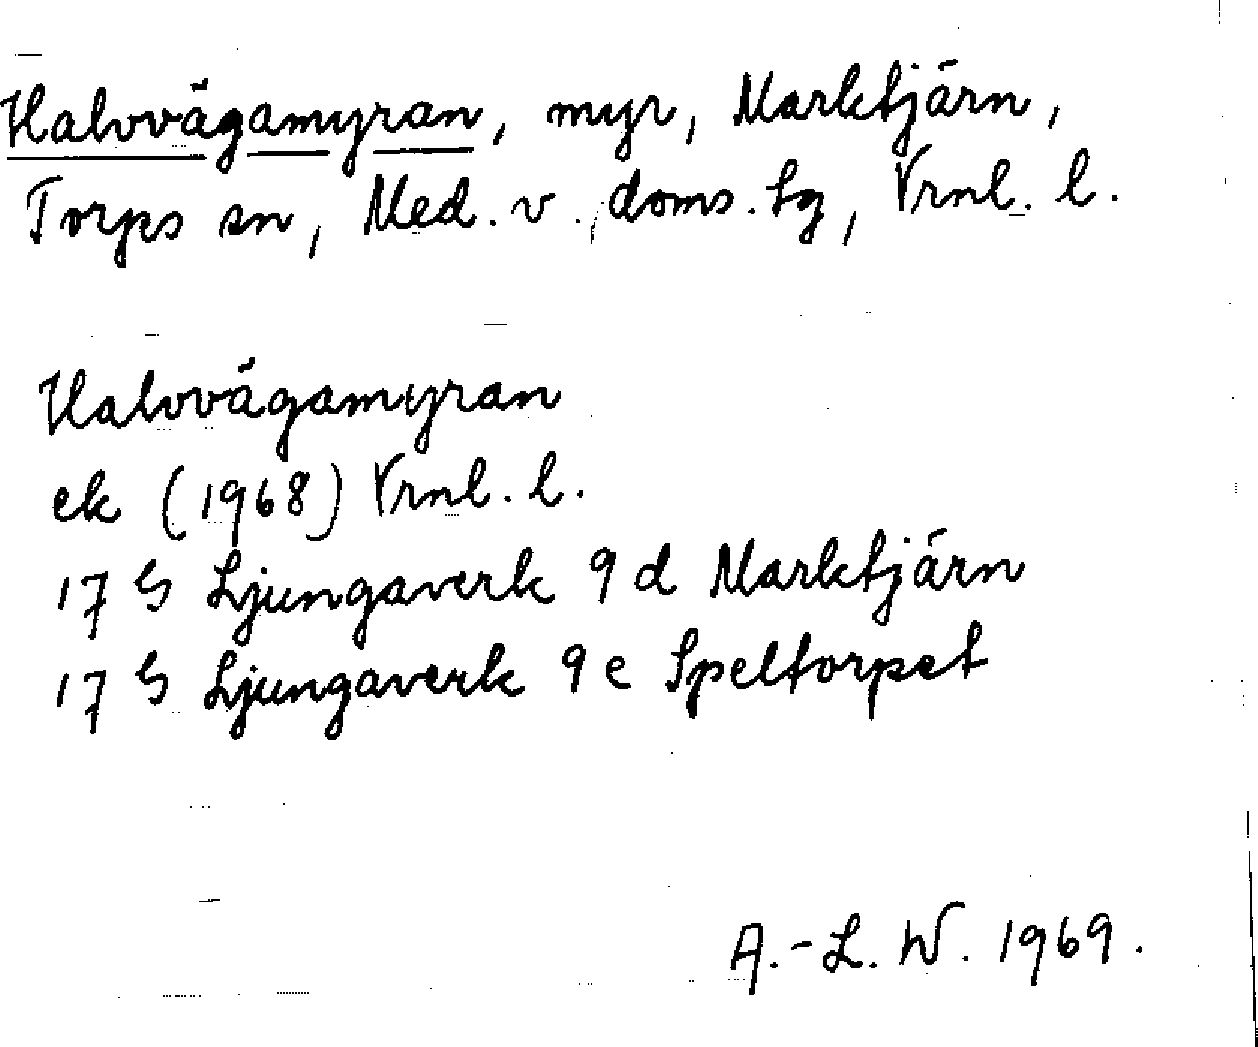 Halvvägamyran, myr, Marktjärn,
Torps sn, Med. v. doms. tg, Vrnl. l.
Halvvägamyran
ek (1968) Vrnl. l.
17 G Ljungaverk 9 d Marktjärn
17 G Ljungaverk 9 e Speltorpet
A.-L. W. 1969.